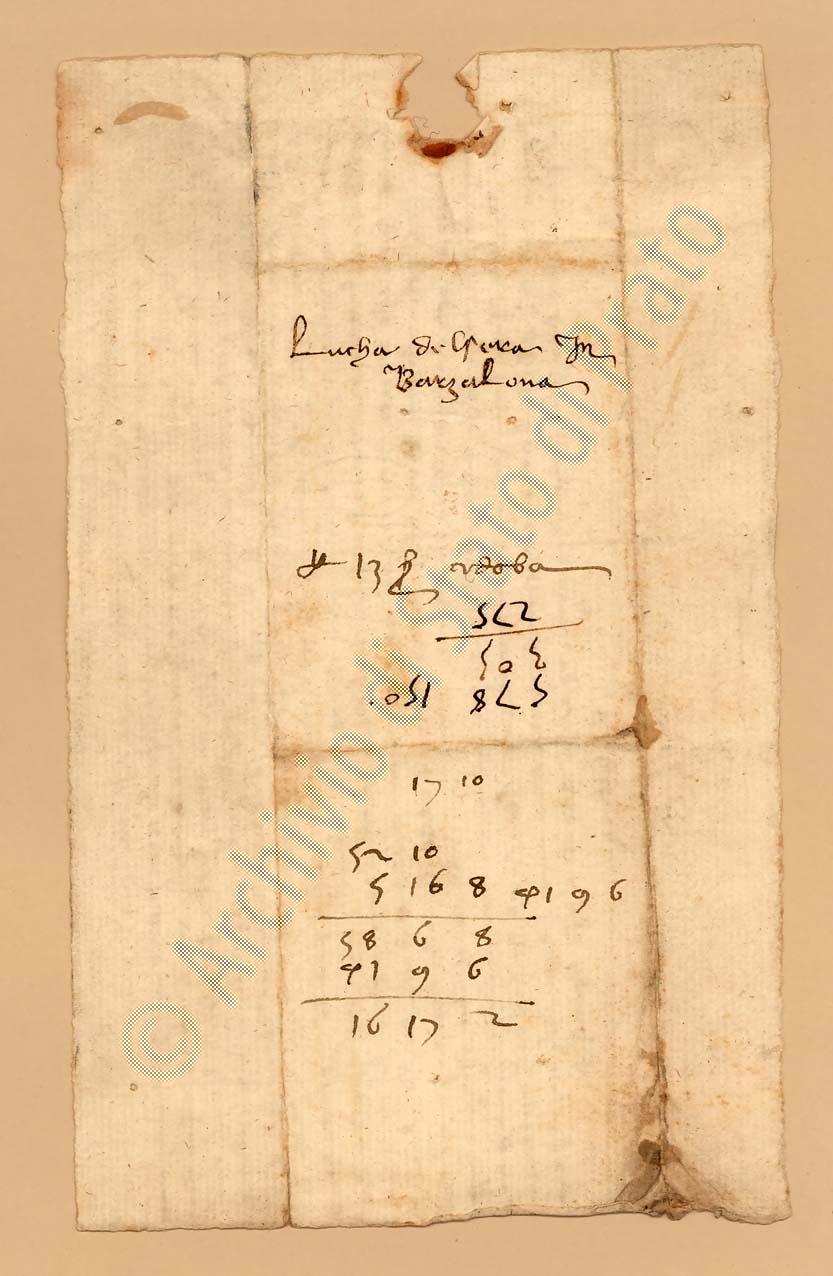 Lucha del Sera In
Barzalona
13 ordoba
575
505
150 875
17 10
52 10
5 16 8 41 9 6
58 6 8
41 9 6
16 17 2
© Archivio di Stato di Prato